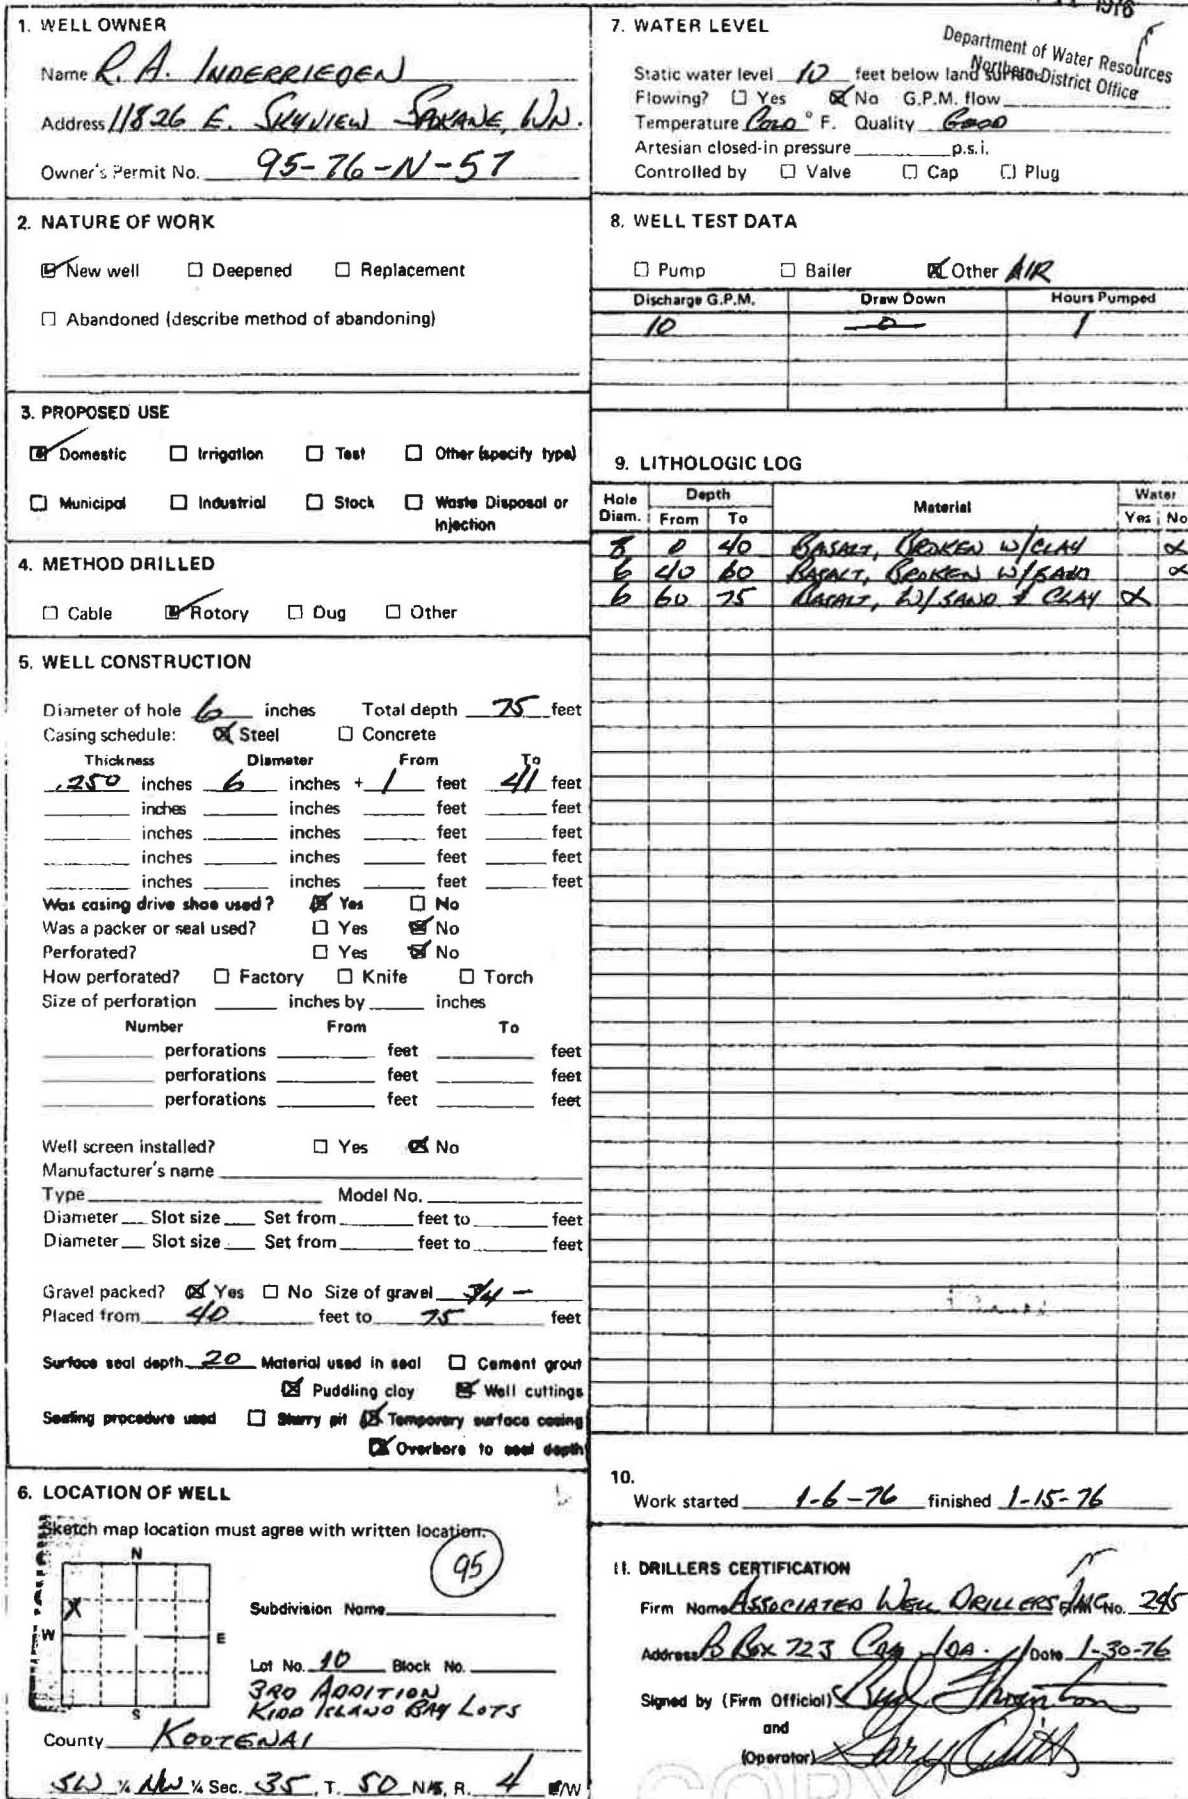 1976
Department of Water Resources
Northern District Office
1. WELL OWNER
Name R. A. INDERRIEDEN
Address 11826 E. SKYVIEW SPOKANE, WN.
Owner's Permit No. 95-76-N-57
2. NATURE OF WORK
New well Deepened Replacement
Abandoned (describe method of abandoning)
3. PROPOSED USE
Domestic Irrigation Test Other (specify type)
Municipal Industrial Stock Waste Disposal or
Injection
4. METHOD DRILLED
Cable Rotory Dug Other
5. WELL CONSTRUCTION
Diameter of hole 6 inches Total depth 75 feet
Casing schedule: Steel Concrete
Thickness Diameter From To
.250 inches 6 inches + 1 feet 41 feet
inches inches feet feet
inches inches feet feet
inches inches feet feet
inches inches feet feet
Was casing drive shoe used? Yes No
Was a packer or seal used? Yes No
Perforated? Yes No
How perforated? Factory Knife Torch
Size of perforation inches by inches
Number From To
perforations feet feet
perforations feet feet
perforations feet feet
Well screen installed? Yes No
Manufacturer's name
Type Model No.
Diameter Slot size Set from feet to feet
Diameter Slot size Set from feet to feet
Gravel packed? Yes No Size of gravel 3/4 -
Placed from 40 feet to 75 feet
Surface seal depth 20 Material used in seal Cement grout
Puddling clay Well cuttings
Sealing procedure used Slurry pit Temporary surface casing
Overbore to seal depth
6. LOCATION OF WELL
Sketch map location must agree with written location.
95
N
X
W E
S
Subdivision Name
Lot No. 10 Block No.
3RD ADDITION
KIDD ISLAND BAY LOTS
County KOOTENAI
SW ¼ NW ¼ Sec. 35, T. 50 N/S, R. 4 E/W
7. WATER LEVEL
Static water level 10 feet below land surface
Flowing? Yes No G.P.M. flow
Temperature COLD ° F. Quality GOOD
Artesian closed-in pressure p.s.i.
Controlled by Valve Cap Plug
8. WELL TEST DATA
Pump Bailer Other AIR
Discharge G.P.M. Draw Down Hours Pumped
10 0 1
9. LITHOLOGIC LOG
Hole Diam. Depth From To Material Water Yes No
8 0 40 BASALT, BROKEN W/CLAY X
6 40 60 BASALT, BROKEN W/SAND X
6 60 75 BASALT, W/SAND & CLAY X
10.
Work started 1-6-76 finished 1-15-76
11. DRILLERS CERTIFICATION
Firm Name ASSOCIATED WELL DRILLERS INC. Firm No. 245
Address P Box 723 Cda Ida. Date 1-30-76
Signed by (Firm Official)
and
(Operator)
COPY